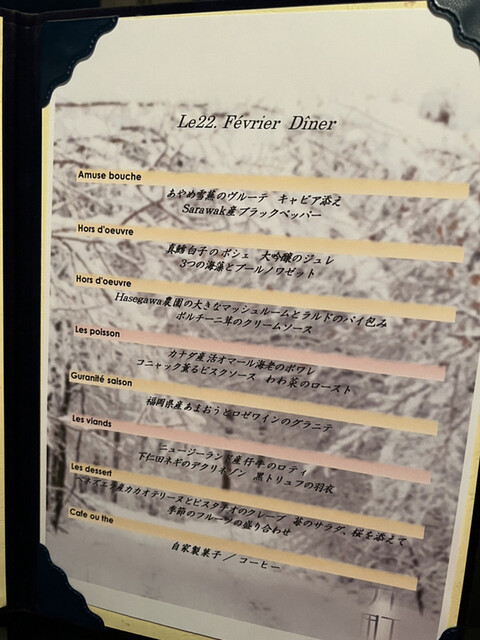 Le22. Février Dîner
Amuse bouche
あやめ雪蕪のヴルーテ キャビア添え
Sarawak産ブラックペッパー
Hors d'oeuvre
真鱈白子のポシェ 大吟醸のジュレ
3つの海藻とブールノワゼット
Hors d'oeuvre
Hasegawa農園の大きなマッシュルームとラルドのパイ包み
ポルチーニ茸のクリームソース
Les poisson
カナダ産活オマール海老のポワレ
コニャック薫るビスクソース わわ菜のロースト
Guranité saison
福岡県産あまおうとロゼワインのグラニテ
Les viands
ニュージーランド産仔羊のロティ
下仁田ネギのデクリネゾン 黒トリュフの羽衣
Les dessert
ベネズエラ産カカオテリーヌとピスタチオのクレープ 苺のサラダ、桜を添えて
季節のフルーツの盛り合わせ
Cafe ou the
自家製菓子／コーヒー